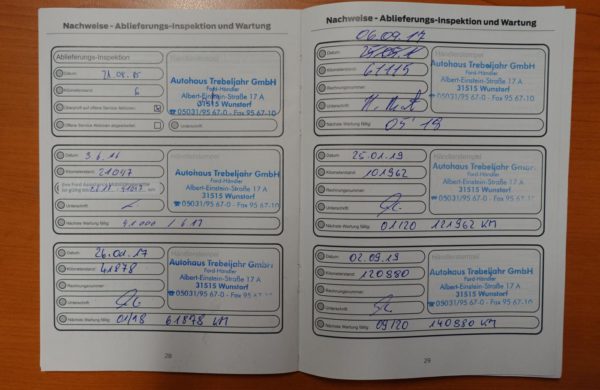 Nachweise - Ablieferungs-Inspektion und Wartung
Ablieferungs-Inspektion
Händlerstempel
Datum
Kilometerstand 6
Überprüft auf offene Service-Aktionen
Offene Service-Aktionen abgearbeitet
Autohaus Trebeljahr GmbH
Ford-Händler
Albert-Einstein-Straße 17 A
31515 Wunstorf
☎ 05031/95 67-0 - Fax 95 67-10
Unterschrift
Datum 3.6.16
Kilometerstand 21047
Unterschrift
Nächste Wartung fällig 41000 / 6.17
Händlerstempel
Autohaus Trebeljahr GmbH
Ford-Händler
Albert-Einstein-Straße 17 A
31515 Wunstorf
☎ 05031/95 67-0 - Fax 95 67-10
Datum 26.01.17
Kilometerstand 41878
Rechnungsnummer
Unterschrift
Nächste Wartung fällig 01/18 61878 KM
Händlerstempel
Autohaus Trebeljahr GmbH
Ford-Händler
Albert-Einstein-Straße 17 A
31515 Wunstorf
☎ 05031/95 67-0 - Fax
28
Nachweise - Ablieferungs-Inspektion und Wartung
Datum
Kilometerstand 61115
Rechnungsnummer
Unterschrift
Nächste Wartung fällig
Händlerstempel
Autohaus Trebeljahr GmbH
Ford-Händler
Albert-Einstein-Straße 17 A
31515 Wunstorf
☎ 05031/95 67-0 - Fax 95 67-10
Datum 25.01.19
Kilometerstand 101962
Rechnungsnummer
Unterschrift
Nächste Wartung fällig 01/20 121962 KM
Händlerstempel
Autohaus Trebeljahr GmbH
Ford-Händler
Albert-Einstein-Straße 17 A
31515 Wunstorf
☎ 05031/95 67-0 - Fax 95 67-10
Datum 02.09.19
Kilometerstand 120880
Rechnungsnummer
Unterschrift
Nächste Wartung fällig 09/20 140880 KM
Händlerstempel
Autohaus Trebeljahr GmbH
Ford-Händler
Albert-Einstein-Straße 17 A
31515 Wunstorf
☎ 05031/95 67-0 - Fax 95 67-10
29